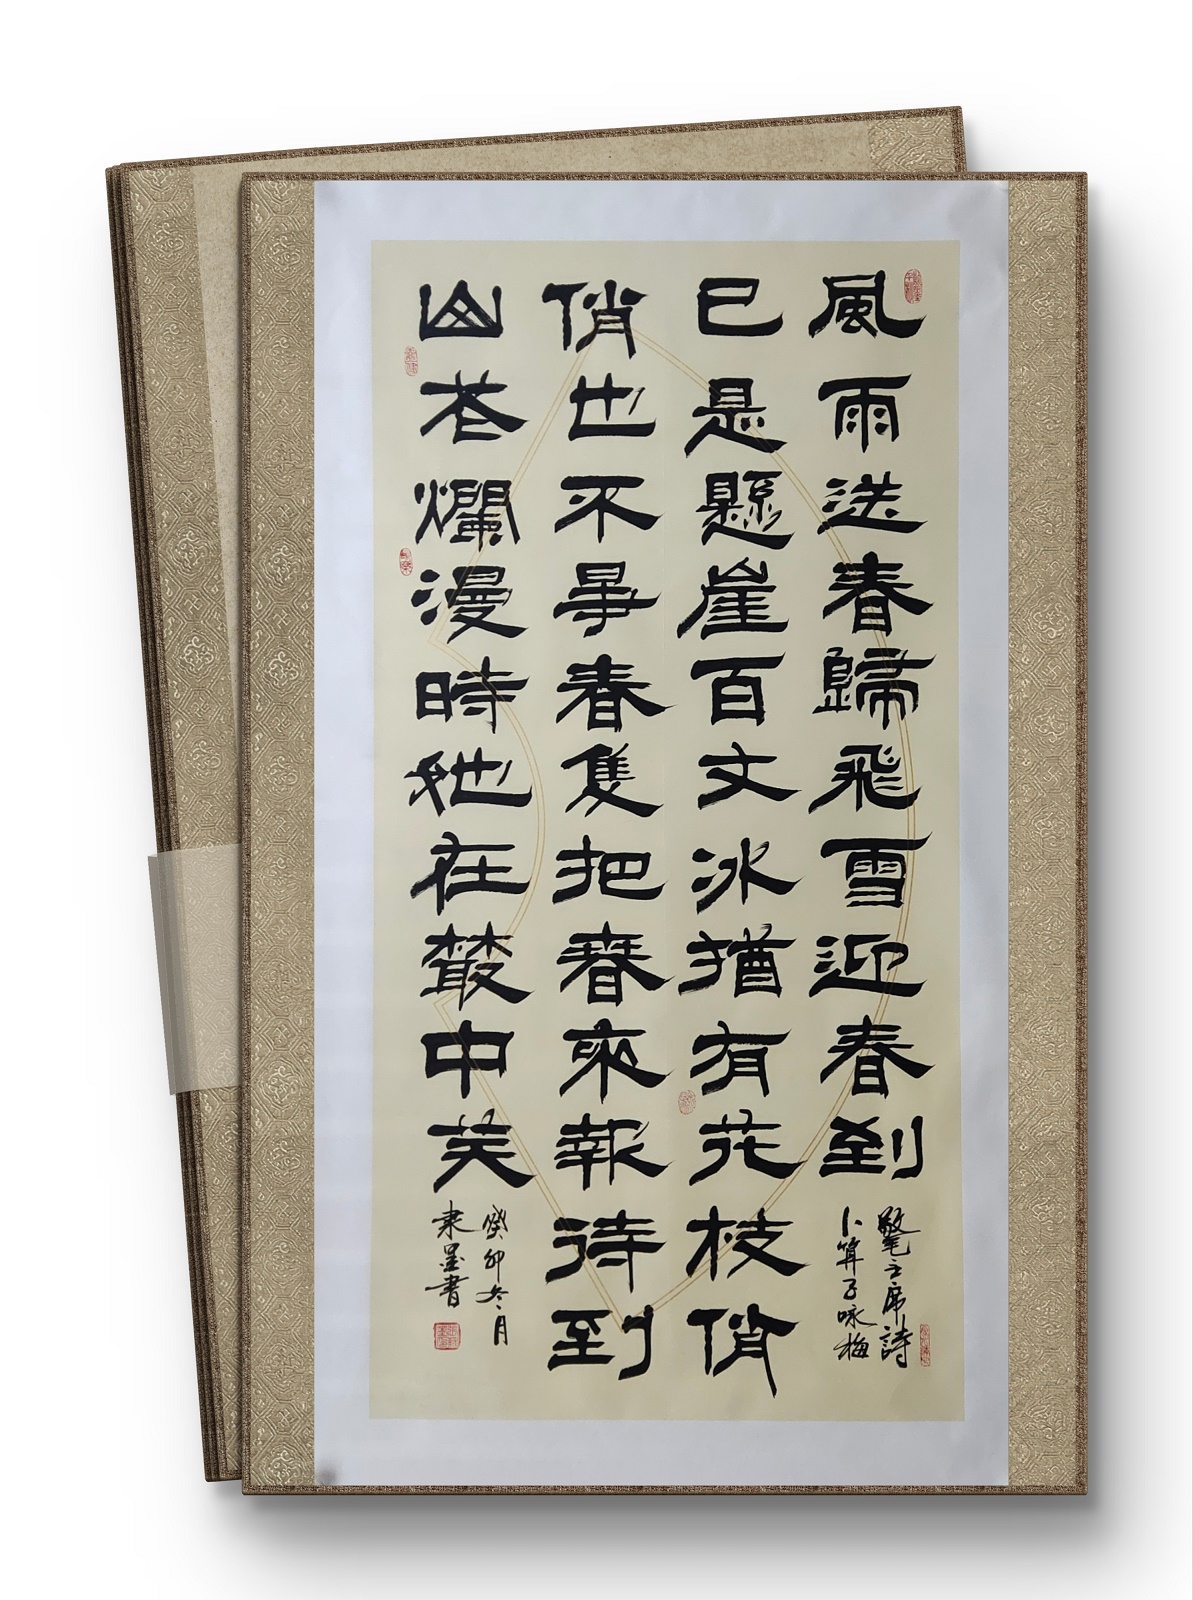 風雨送春歸飛雪迎春到
敬毛主席詩
卜算子咏梅
已是懸崖百丈冰猶有花枝俏
俏也不爭春隻把春來報待到
山花爛漫時她在叢中笑
癸卯冬月
隶墨書